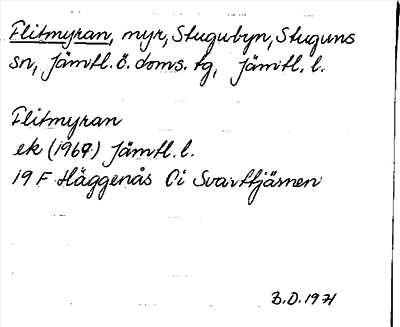 Flitmyran, myr, Stugubyn, Stuguns
sn, Jämtl. ö. doms. tg, Jämtl. l.
Flitmyran
ek (1967) Jämtl. l.
19 F Häggenås 0i Svarttjärnen
B.D. 1971